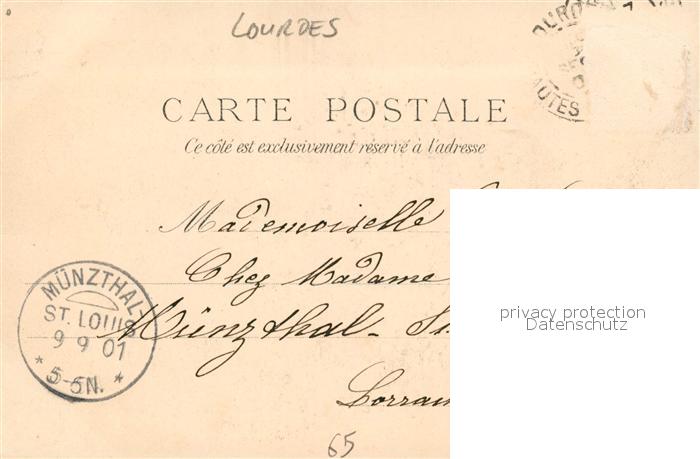 LOURDES
CARTE POSTALE
Ce côté est exclusivement réservé à l'adresse
AUTES
Mademoiselle
Chez Madame
Münzthal-
MÜNZTHAL
ST. LOUIS
9 9 01
* 5-6N. *
privacy protection
Datenschutz
65